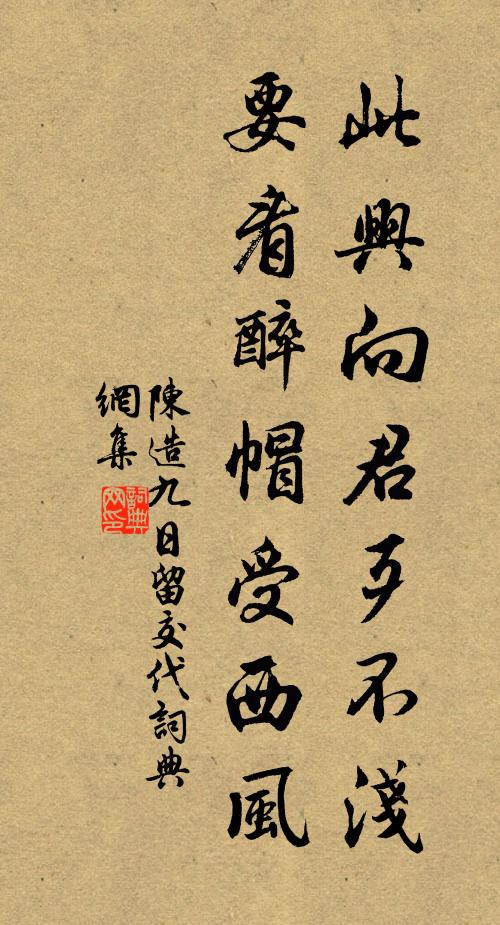 此興向君互不淺
要看醉帽受西風
陳造九日留交代詞典
網集
詞典
网印